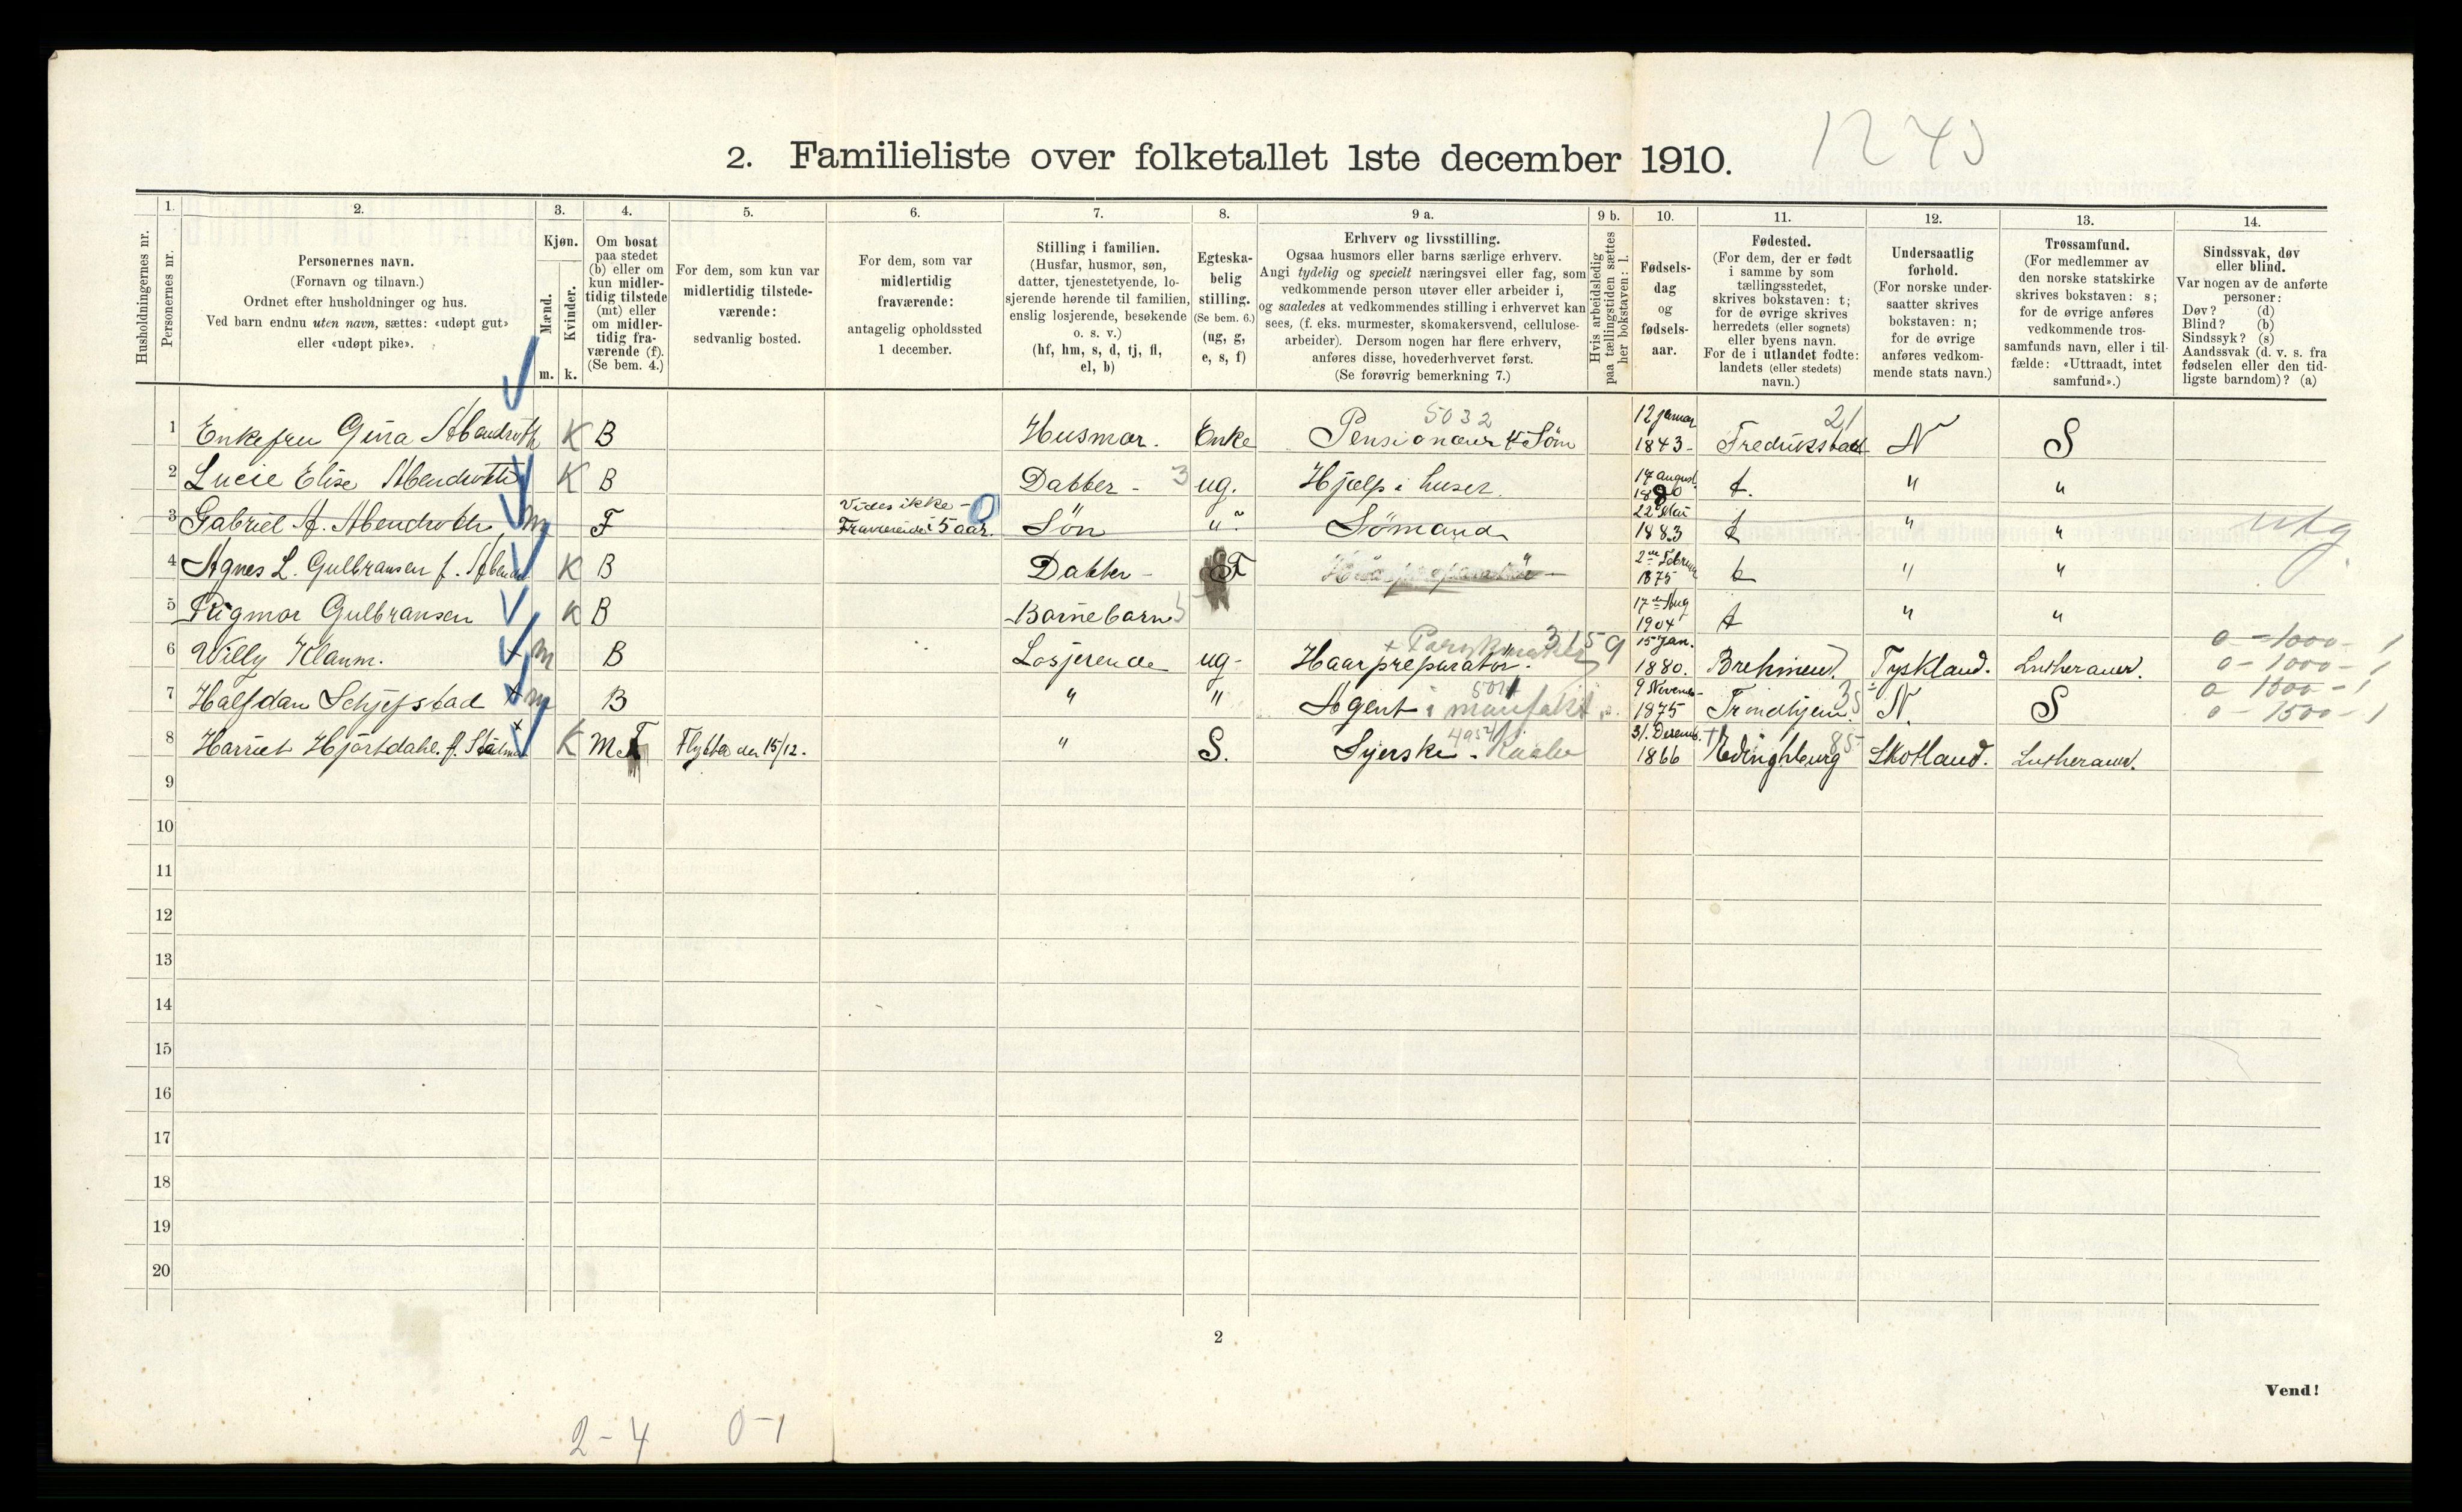 1243
2. Familieliste over folketallet 1ste december 1910.
Husholdningernes nr.
1. Personernes nr.
2. Personernes navn.
(Fornavn og tilnavn.)
Ordnet efter husholdninger og hus.
Ved barn endnu uten navn, sættes: «udøpt gut»
eller «udøpt pike».
3. Kjøn.
Mænd. m.
Kvinder. k.
4. Om bosat
paa stedet
(b) eller om
kun midler-
tidig tilstede
(mt) eller
om midler-
tidig fra-
værende (f).
(Se bem. 4.)
5. For dem, som kun var
midlertidig tilstede-
værende:
sedvanlig bosted.
6. For dem, som var
midlertidig
fraværende:
antagelig opholdssted
1 december.
7. Stilling i familien.
(Husfar, husmor, søn,
datter, tjenestetyende, lo-
sjerende hørende til familien,
enslig losjerende, besøkende
o. s. v.)
(hf, hm, s, d, tj, fl,
el, b)
8. Egteska-
belig
stilling.
(Se bem. 6.)
(ug, g,
e, s, f)
9 a. Erhverv og livsstilling.
Ogsaa husmors eller barns særlige erhverv.
Angi tydelig og specielt næringsvei eller fag, som
vedkommende person utøver eller arbeider i,
og saaledes at vedkommendes stilling i erhvervet kan
sees, (f. eks. murmester, skomakersvend, cellulose-
arbeider). Dersom nogen har flere erhverv,
anføres disse, hovederhvervet først.
(Se forøvrig bemerkning 7.)
9 b. Hvis arbeidsledig
paa tællingstiden sættes
her bokstaven: l.
10. Fødsels-
dag
og
fødsels-
aar.
11. Fødested.
(For dem, der er født
i samme by som
tællingsstedet,
skrives bokstaven: t;
for de øvrige skrives
herredets (eller sognets)
eller byens navn.
For de i utlandet fødte:
landets (eller stedets)
navn.)
12. Undersaatlig
forhold.
(For norske under-
saatter skrives
bokstaven: n;
for de øvrige
anføres vedkom-
mende stats navn.)
13. Trossamfund.
(For medlemmer av
den norske statskirke
skrives bokstaven: s;
for de øvrige anføres
vedkommende tros-
samfunds navn, eller i til-
fælde: «Uttraadt, intet
samfund».)
14. Sindssvak, døv
eller blind.
Var nogen av de anførte
personer:
Døv? (d)
Blind? (b)
Sindssyk? (s)
Aandssvak (d. v. s. fra
fødselen eller den tid-
ligste barndom)? (a)
1 Enkefru Gina Abendroth K B Husmor. Enke 5032 Pensionær 12 januar 1843 - 21 Fredriksstad N S
2 Lucie Elise Abendroth K B Datter - 3 ug. Hjælp i huset. 14 august 1880 t. " "
3 Gabriel A. Abendroth m F Vides ikke - 0 Fraværende i 5 aar. Søn " Sømand 22 Mai 1883 t " " utg
4 Agnes L. Gulbransen f. Abend. K B Datter - F 2den Februar 1875 t " "
5 Rigmor Gulbransen K B Barnebarn 17de Aug 1904 t " "
6 Willy Klanm. x m B Losjerende ug - Haarpreparatør. + Parykmaker 3159 15 Jan. 1880. Brehmen. Tyskland. Lutheraner. 0 - 1000 - 1
0 - 1000 - 1
7 Halfdan Schjefstad x m B " " Agent i manufakt 9 Novemb - 1875 Trondhjem. 35 N. S 0 - 1500 - 1
0 - 1500 - 1
8 Harriet Hjortdahl. f. K M.T Flyttet den 15/12. " S. Syerske - Kaabe 31. Decemb. 1866 Edinghburg 85 Skotland. Lutheraner.
9
10
11
12
13
14
15
16
17
18
19
20
2
Vend!
2 - 4 0 - 1